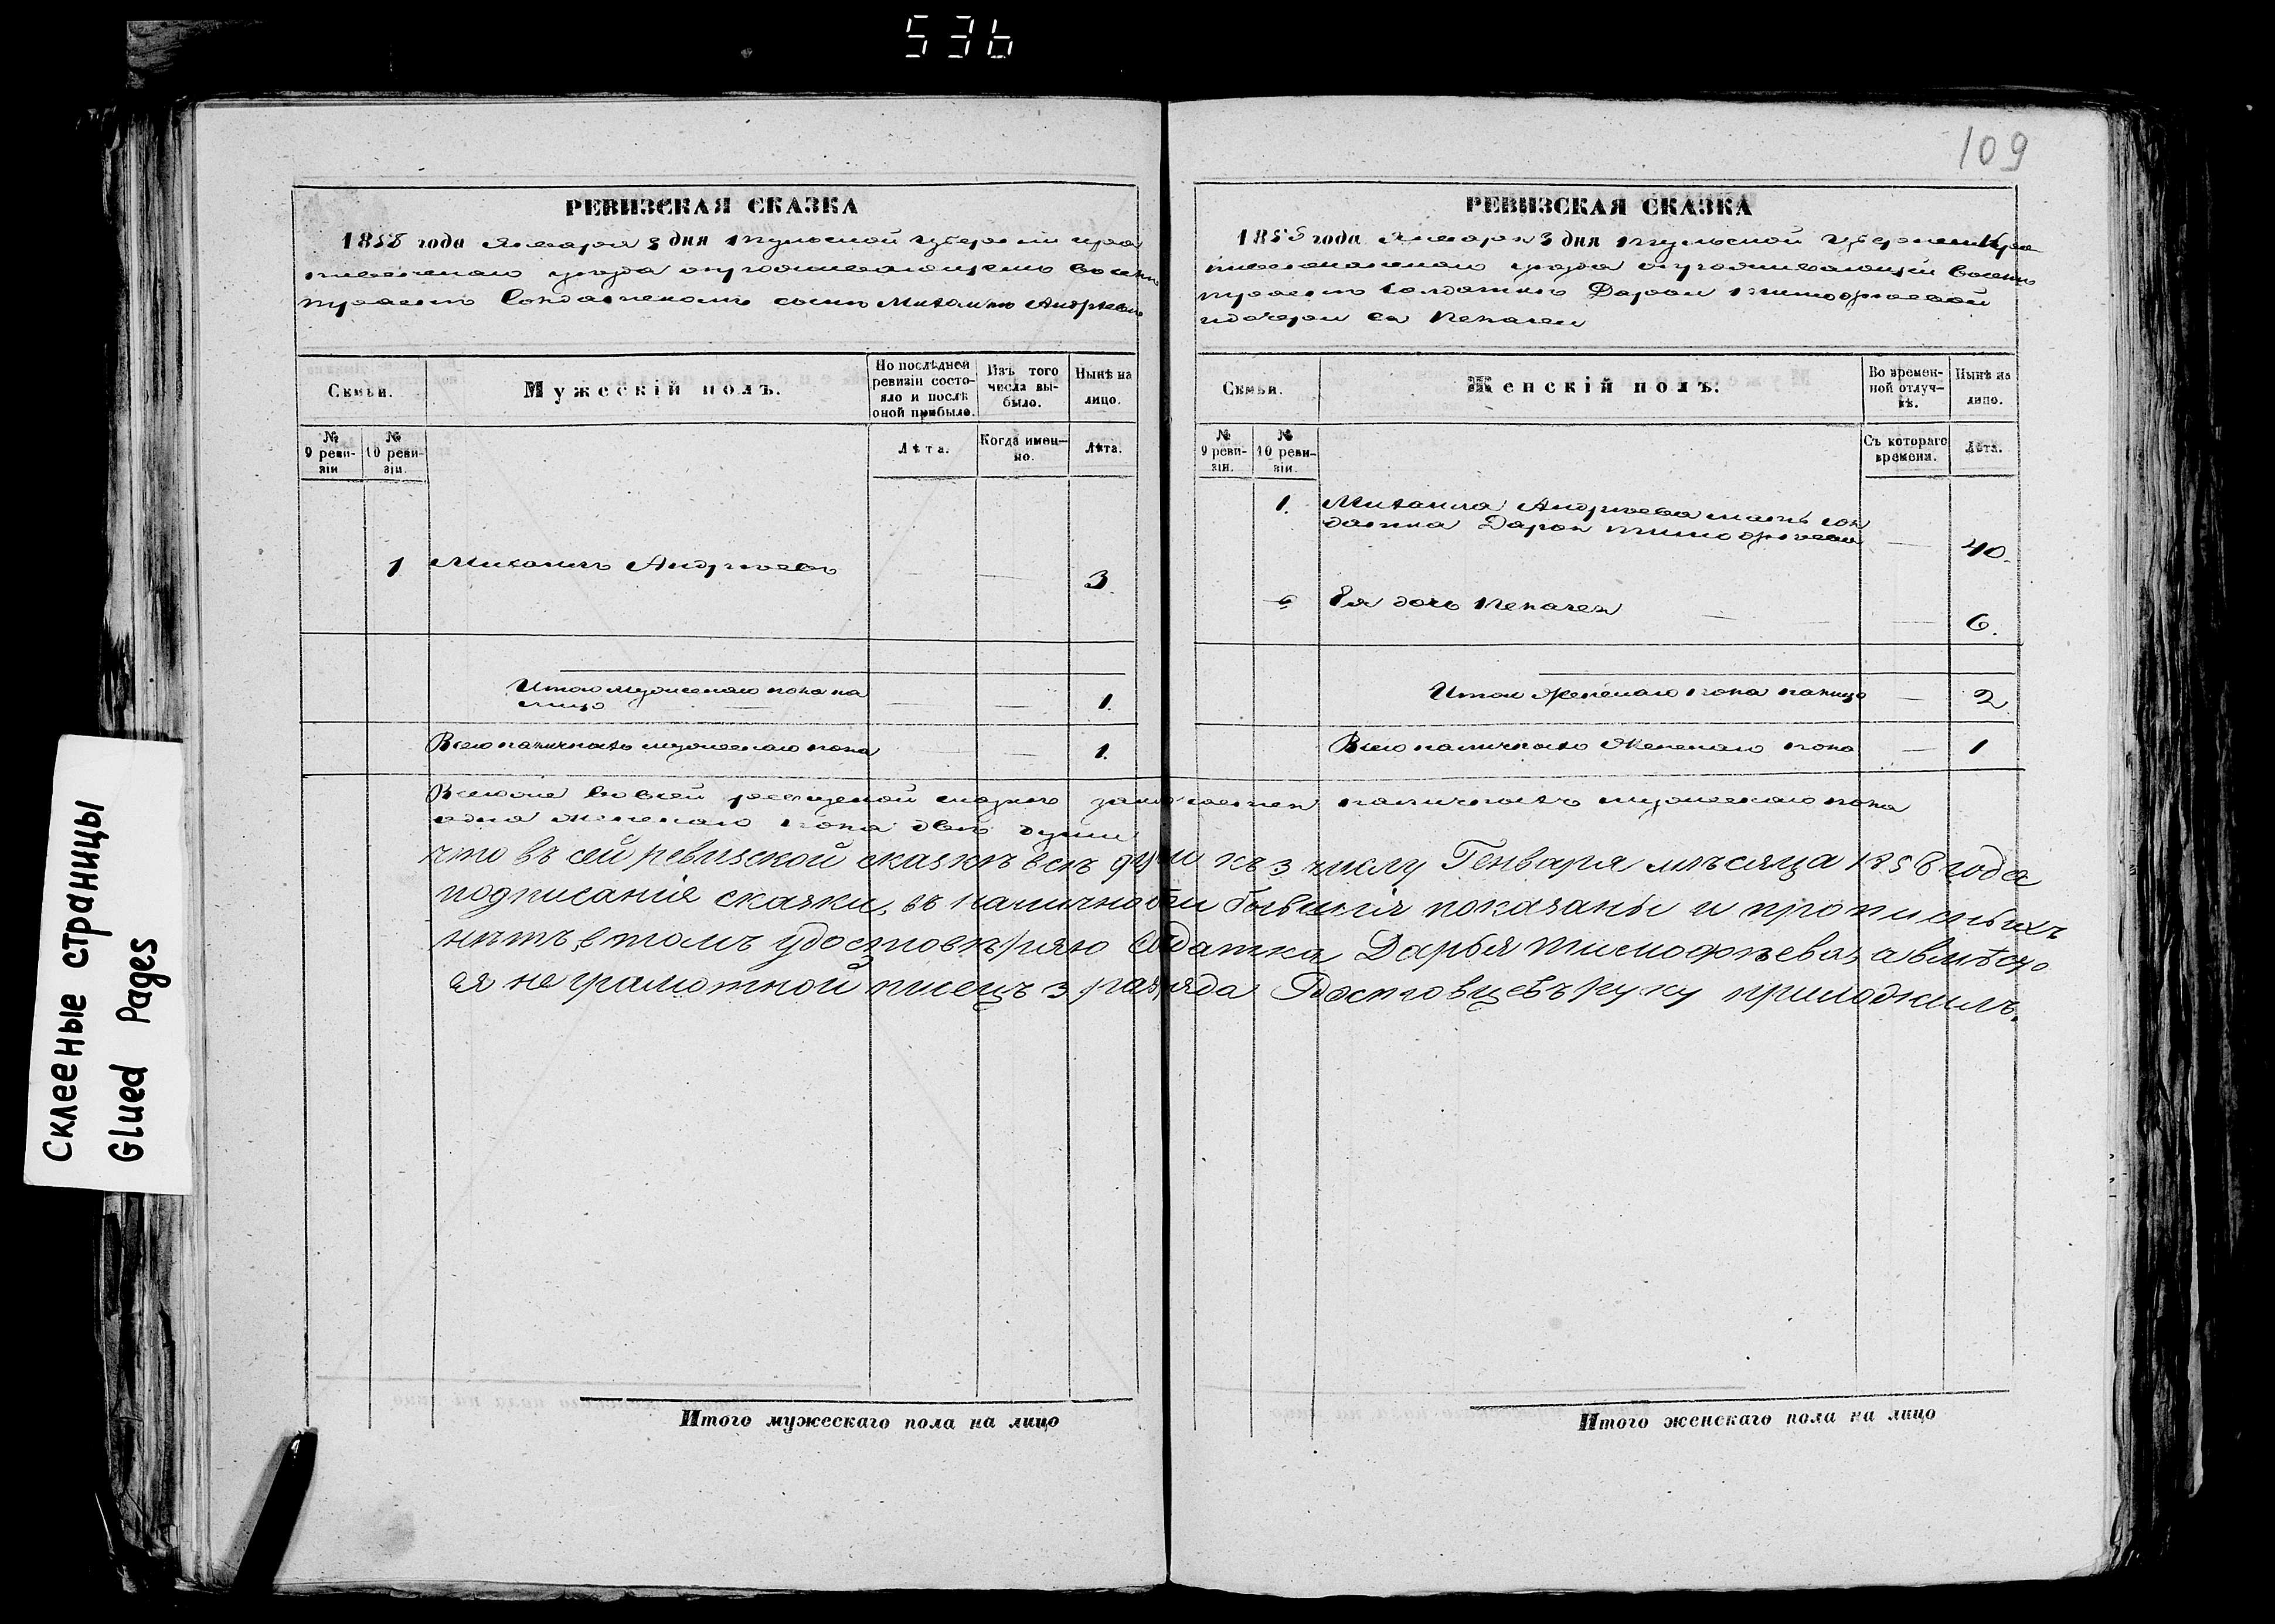 536
109
РЕВИЗСКАЯ СКАЗКА
1858 года Января 3 дня Тульской губернии Кра
пивенскаго уезда
Солдатскомъ сыне Михаиле Андрееве
Семьи.
Мужескій полъ.
По послѣдней ревизіи состояло и послѣ оной прибыло.
Изъ того числа выбыло.
Нынѣ на лицо.
№ 9 ревизіи
№ 10 ревизіи.
Лѣта.
Когда именно.
Лѣта.
1 Михаилъ Андреевъ 3.
Итого мужескаго пола на
лицо 1.
Всего наличныхъ мужескаго пола 1.
РЕВИЗСКАЯ СКАЗКА
1858 года Января 3 дня Тульской губернии Кра
пивенскаго уезда
Солдатке Дарьи Тимофеевой
и дочери ея Пелагеи
Семьи.
Женскій полъ.
Во временной отлучкѣ.
Нынѣ на лицо.
№ 9 ревизіи.
№ 10 ревизіи.
Съ котораго времени.
Лѣта.
1. Михаила Андреева мать сол
датка Дарья Тимофеева 40.
Ея дочь Пелагея 6.
Итого Женскаго пола налицо 2
Всего наличныхъ Женскаго пола 1
наличныхъ мужескаго пола
одна женскаго пола две души
что въ сей ревизской сказкѣ всѣ души къ 3 числу Генваря мѣсяца 1858 года
подписанія сказки, въ наличности бывшія показаны и прописныхъ
нѣтъ, в томъ удостовѣряю Солдатка Дарья Тимофѣева, а вмѣсто
ея не грамотной писецъ 3 разряда Ростовцевъ руку приложилъ.
Итого мужескаго пола на лицо
Итого женскаго пола на лицо
Склееные страницы
Glued Pages